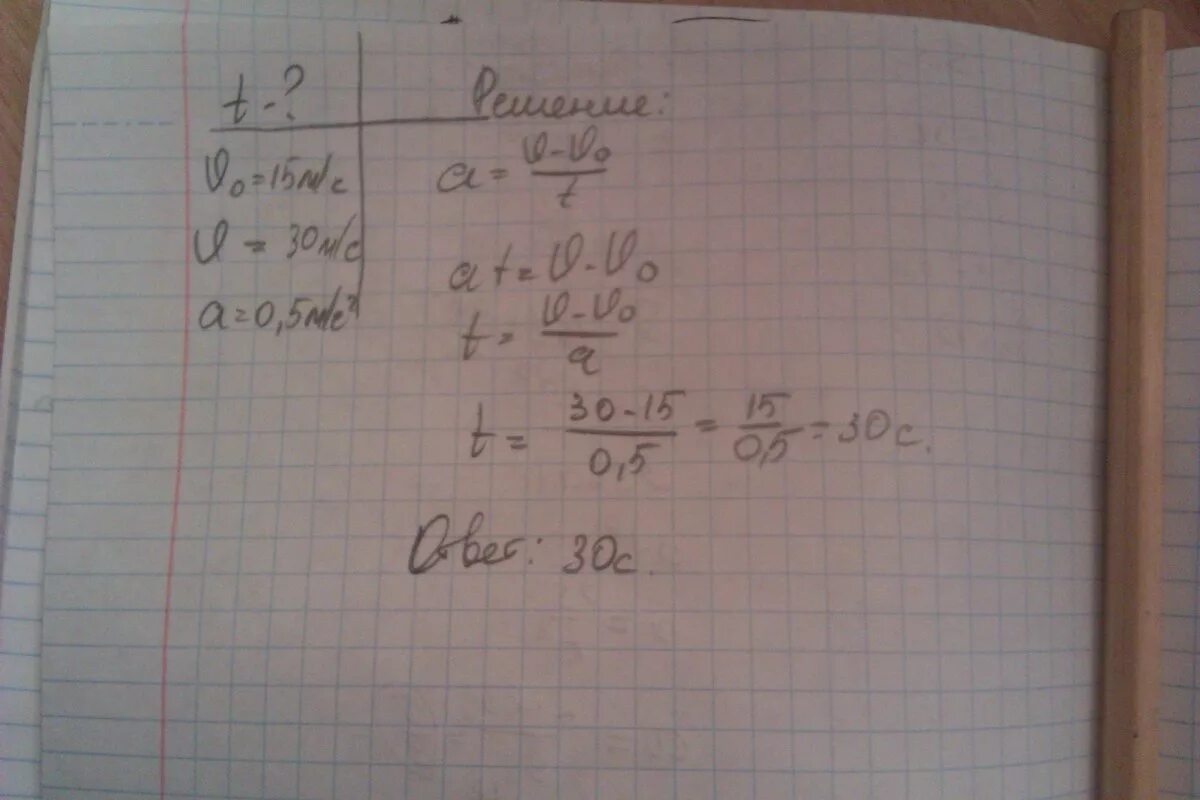 t - ?
υ₀ = 15 м/с
υ = 30 м/с
a = 0,5 м/с²
Решение:
a = (υ - υ₀) / t
at = υ - υ₀
t = (υ - υ₀) / a
t = (30 - 15) / 0,5 = 15 / 0,5 = 30 с.
Ответ: 30 с.